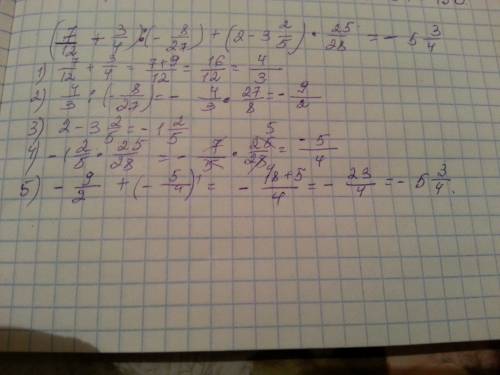 (7/12 + 3/4) : (- 8/27) + (2 - 3 2/5) · 25/28 = - 5 3/4
1) 7/12 + 3/4 = 7+9/12 = 16/12 = 4/3
2) 4/3 : (- 8/27) = - 4/3 · 27/8 = - 9/2
3) 2 - 3 2/5 = - 1 2/5
4) - 1 2/5 · 25/28 = - 7/5 · 25/28 = - 5/4
5) - 9/2 + (- 5/4) = - 18+5/4 = - 23/4 = - 5 3/4.